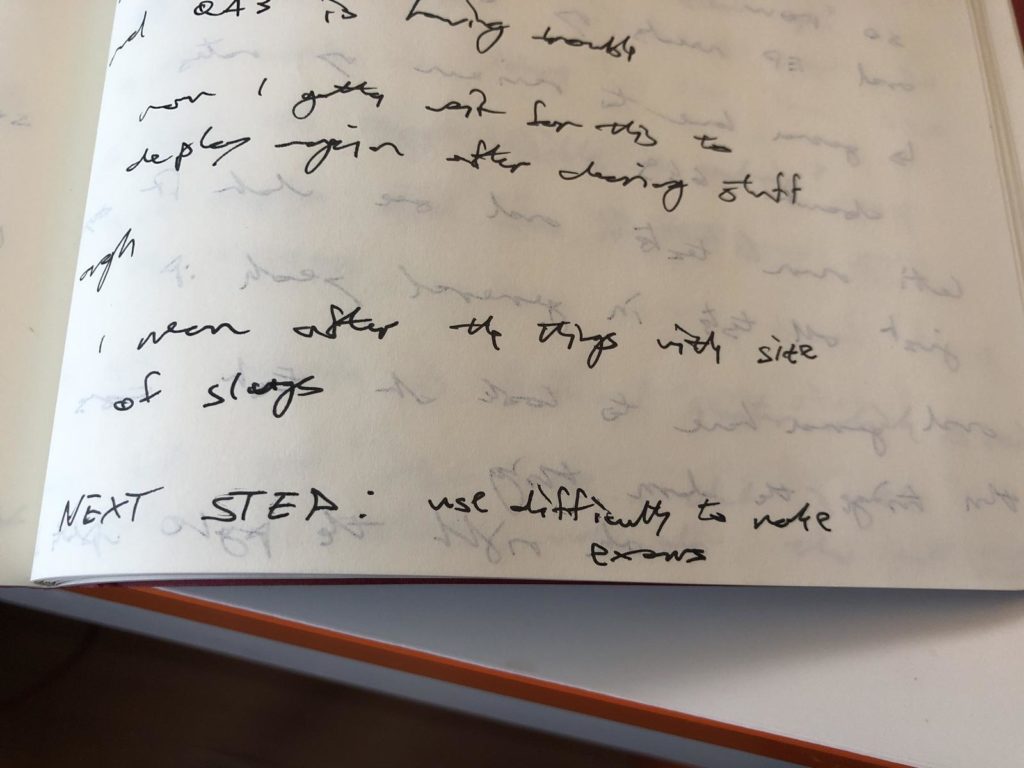 and QA3 is having trouble
now I gotta wait for this to
deploy again after clearing stuff
argh
I mean after the things with size
of slugs
NEXT STEP: use difficulty to make
exams